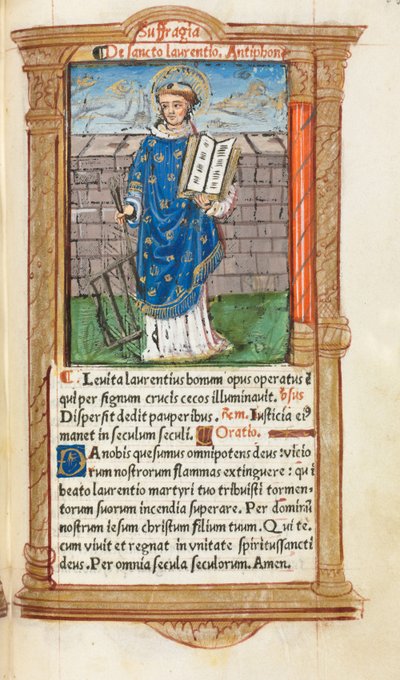 Suffragia
De sancto laurentio. Antiphone
Levita laurentius bonum opus operatus ē
qui per signum crucis cecos illuminauit. v̄sus
Dispersit dedit pauperibus. Rem. Iusticia eiꝰ
manet in seculum seculi. Oratio.
DA nobis quesumus omnipotens deus: vicio
rum nostrorum flammas extinguere: qui
beato laurentio martyri tuo tribuisti tormen-
torum suorum incendia superare. Per dominū
nostrum iesum christum filium tuum. Qui te
cum viuit et regnat in vnitate spiritussancti
deus. Per omnia secula seculorum. Amen.